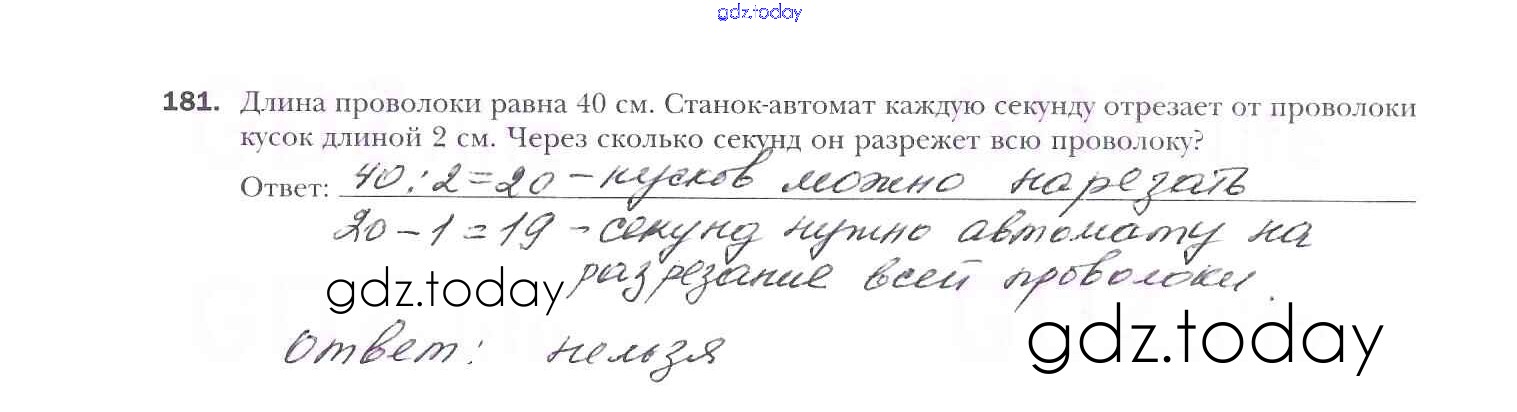 gdz.today
181. Длина проволоки равна 40 см. Станок-автомат каждую секунду отрезает от проволоки
кусок длиной 2 см. Через сколько секунд он разрежет всю проволоку?
Ответ: 40:2=20 – кусков можно нарезать
20 – 1 = 19 – секунд нужно автомату на
gdz.today разрезание всей проволоки.
gdz.today
Ответ: нельзя